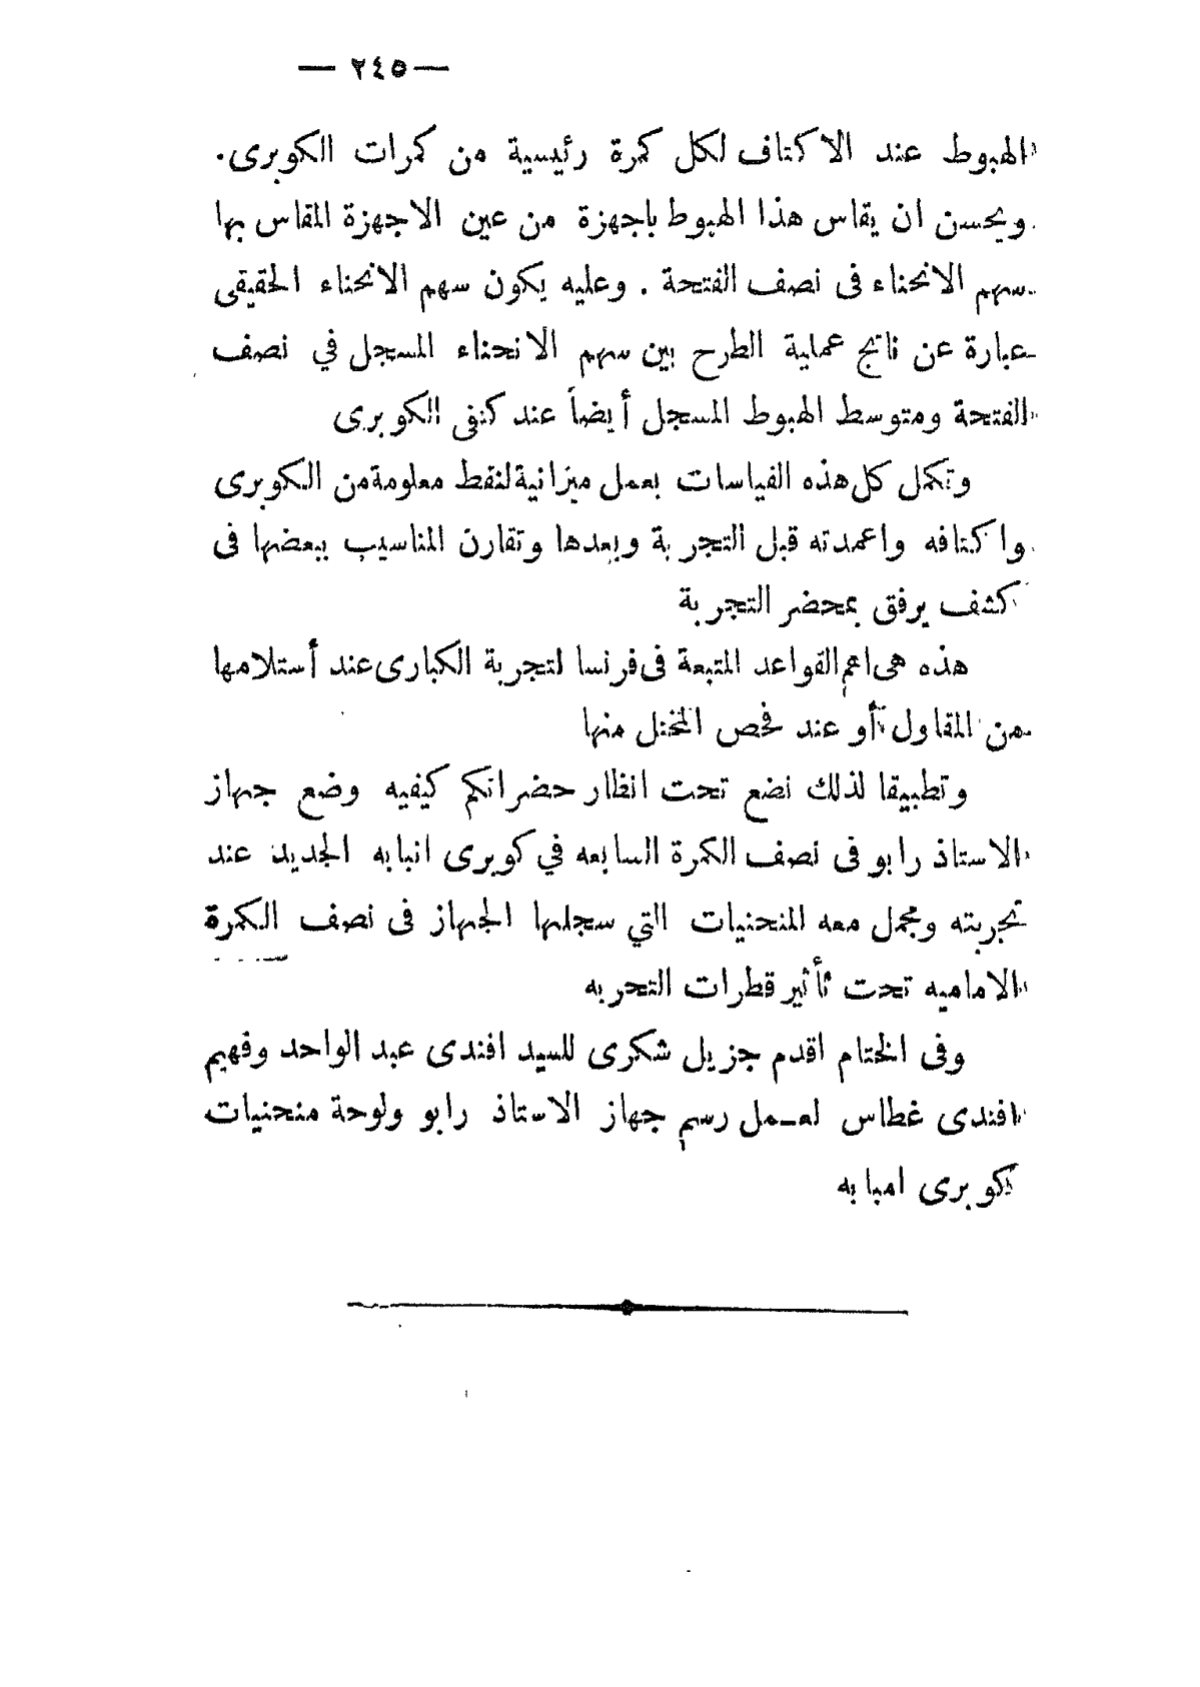 — ٢٤٥ —
الهبوط عند الاكتاف لكل كمرة رئيسية من كمرات الكوبرى.
ويحسن ان يقاس هذا الهبوط باجهزة من عين الاجهزة المقاس بها
سهم الانحناء فى نصف الفتحة . وعليه يكون سهم الانحناء الحقيقى
عبارة عن ناتج عملية الطرح بين سهم الانحناء المسجل في نصف
الفتحة ومتوسط الهبوط المسجل أيضاً عند كتفى الكوبرى
وتكمل كل هذه القياسات بعمل ميزانية لنقط معلومة من الكوبرى
واكتافه واعمدته قبل التجربة وبعدها وتقارن المناسيب ببعضها فى
كشف يرفق بمحضر التجربة
هذه هى اهم القواعد المتبعة فى فرنسا لتجربة الكبارى عند أستلامها
من المقاول أو عند فحص المختل منها
وتطبيقا لذلك نضع تحت انظار حضراتكم كيفيه وضع جهاز
الاستاذ رابو فى نصف الكمرة السابعه في كوبرى انبابه الجديد عند
تجربته ومجمل معه المنحنيات التي سجلها الجهاز فى نصف الكمرة
الاماميه تحت تأثير قطرات التجربه
وفى الختام اقدم جزيل شكرى للسيد افندى عبد الواحد وفهيم
افندى غطاس لعمل رسم جهاز الاستاذ رابو ولوحة منحنيات
كوبرى امبابه